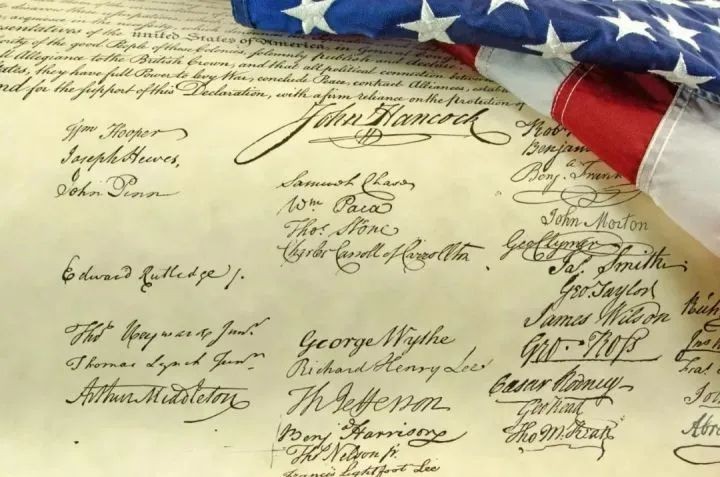 acquiesce in the necessity,
Representatives of the united States of America, in General
authority of the good People of these Colonies, solemnly publish and
Allegiance to the British Crown, and that all political connection between
States, they have full Power to levy War, conclude Peace, contract Alliances,
And for the support of this Declaration, with a firm reliance on the protection of
John Hancock
Wm Hooper
Joseph Hewes,
John Penn
Edward Rutledge /.
Thos Heyward Junr.
Thomas Lynch Junr.
Arthur Middleton
Samuel Chase
Wm. Paca
Thos. Stone
Charles Carroll of Carrollton
George Wythe
Richard Henry Lee
Th Jefferson
Benj Harrison
Thos Nelson jr.
Francis Lightfoot Lee
Benj. Frank
John Morton
Geo Clymer
Jas. Smith
Geo. Taylor
James Wilson
Geo. Ross
Caesar Rodney
Geo Read
Tho M. Kean